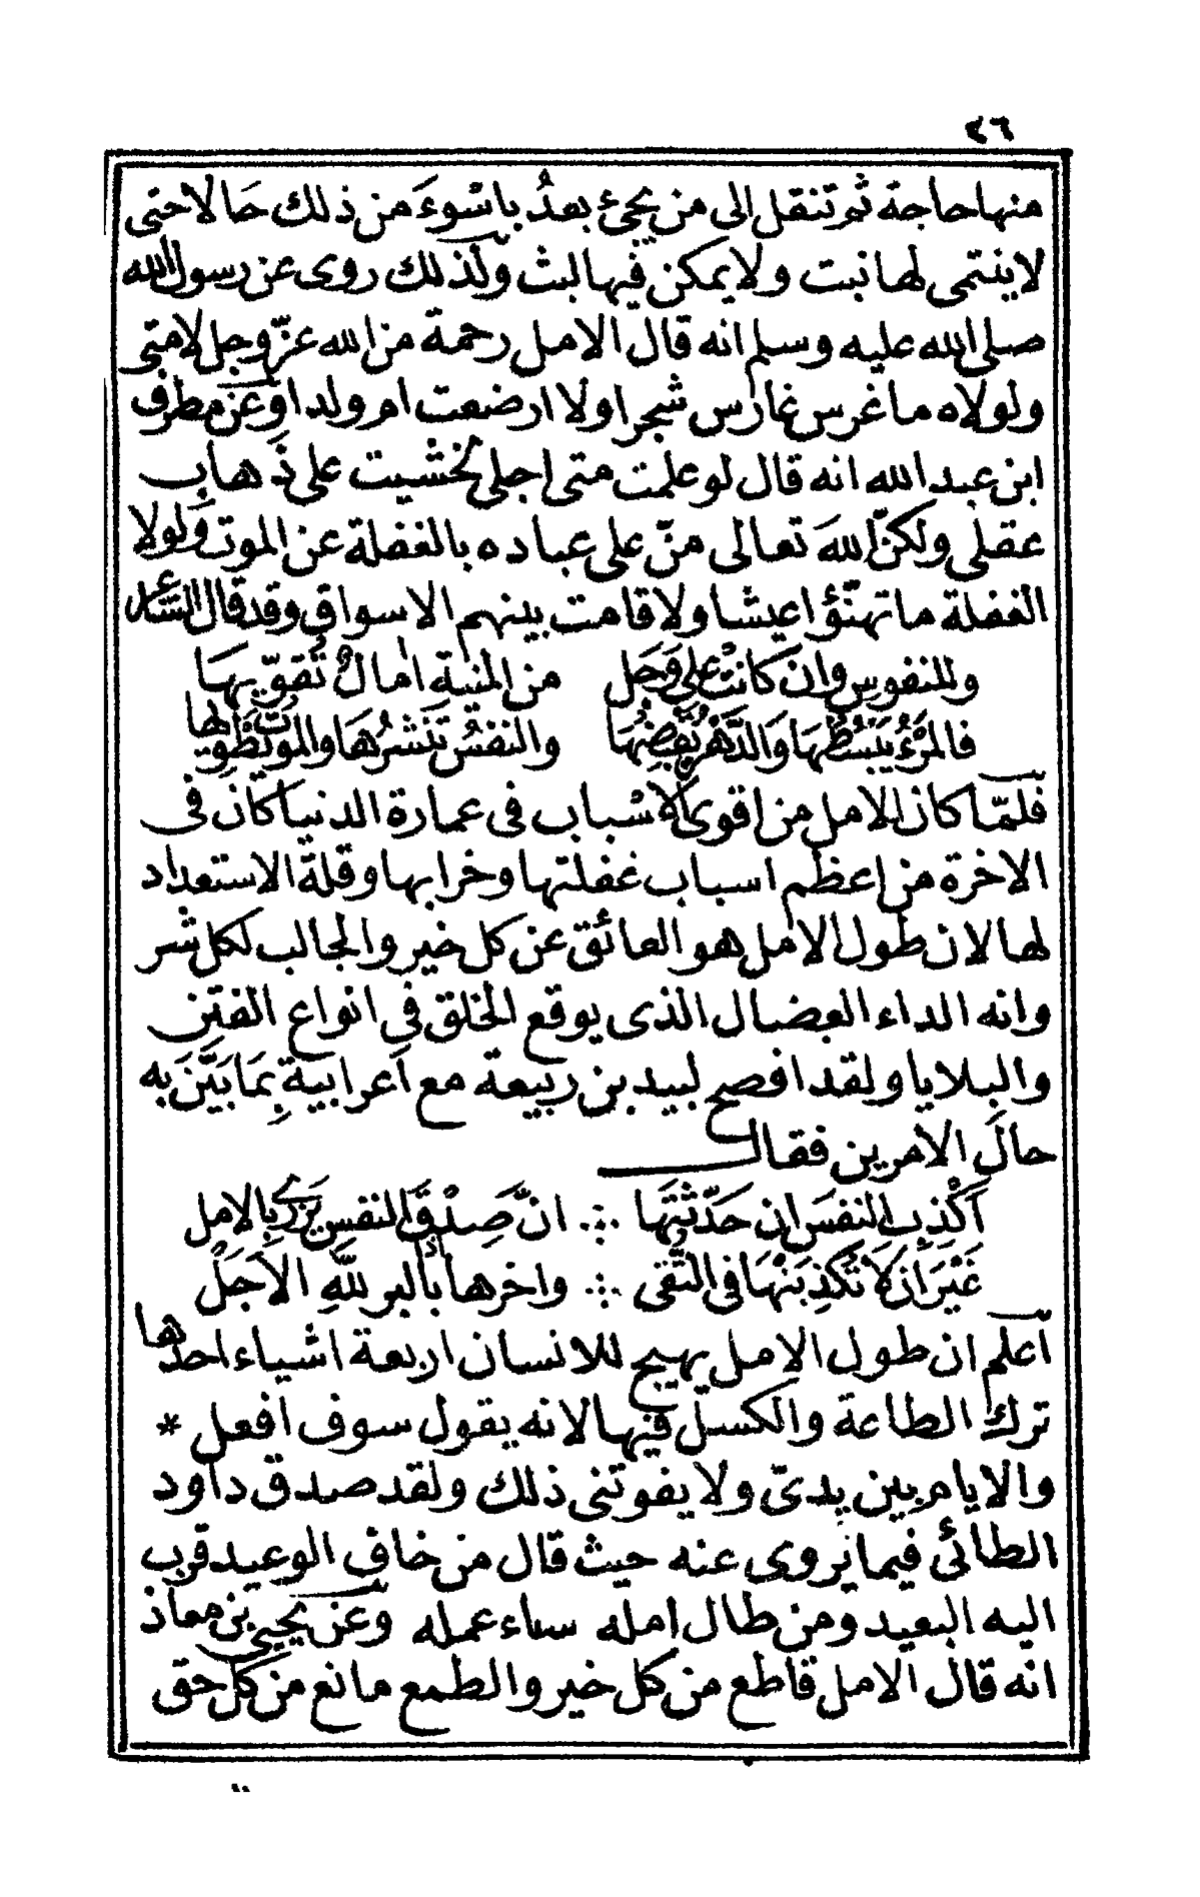 ٢٦
منها حاجة ثم تنقل الى من يجئ بعدُ باسْوءَ من ذلك حالا حتى
لا ينتمى لها نبت ولا يمكن فيها لبث ولذلك روى عن رسول الله
صلى الله عليه وسلم انه قال الامل رحمة من الله عزّ وجل لامتى
ولولاه ما غرس غارس شجرا ولا ارضعت ام ولدا وعن مطرف
ابن عبد الله انه قال لو علمت متى اجلى لخشيت على ذَهاب
عقلى ولكنّ اللهَ تعالى منّ على عباده بالغفلة عن الموت ولولا
الغفلة ما تهنّؤا عيشا ولا قامت بينهم الاسواق وقد قال الشاعر
وللنفوس وان كانتْ على وَجَل من المنية امالٌ تُقوّيها
فالمرْءُ يَبْسُطُها والدَّهْرُ يَقبضُها والنفسُ تَنْشُرُها والموتُ يطويها
فلمّا كان الامل من اقوى الاسْباب فى عمارة الدنيا كان فى
الاخرة من اعظم اسباب غفلتها وخرابها وقلة الاستعداد
لها لان طول الامل هو العائق عن كل خير والجالب لكل شر
وانه الداء العضال الذى يوقع الخلق فى انواع الفتن
والبلايا ولقد افصح لبيد بن ربيعة مع اَعرابية بِمَا بَيَّنَ به
حالَ الامرين فقال
اَكْذِب النفسَ ان حَدّثتَها ∴ انَّ صِدْقَ النفس يَزرى بالامل
غَيْرَ اَن لَا تَكْذِبَنْهَا فى التُّقى ∴ واخزها بالبر للهِ الاَجَلّ
اعلم ان طول الامل يهيج للانسان اربعة اشياء احدها
ترك الطاعة والكسل فيها لانه يقول سوف افعل *
والايام بين يدىّ ولا يفوتنى ذلك ولقد صدق داود
الطائى فيما نروى عنه حيث قال من خاف الوعيد قرب
اليه البعيد ومن طال امله ساء عمله وعن يحيى بن معاذ
انه قال الامل قاطع من كل خير والطمع مانع من كل حق